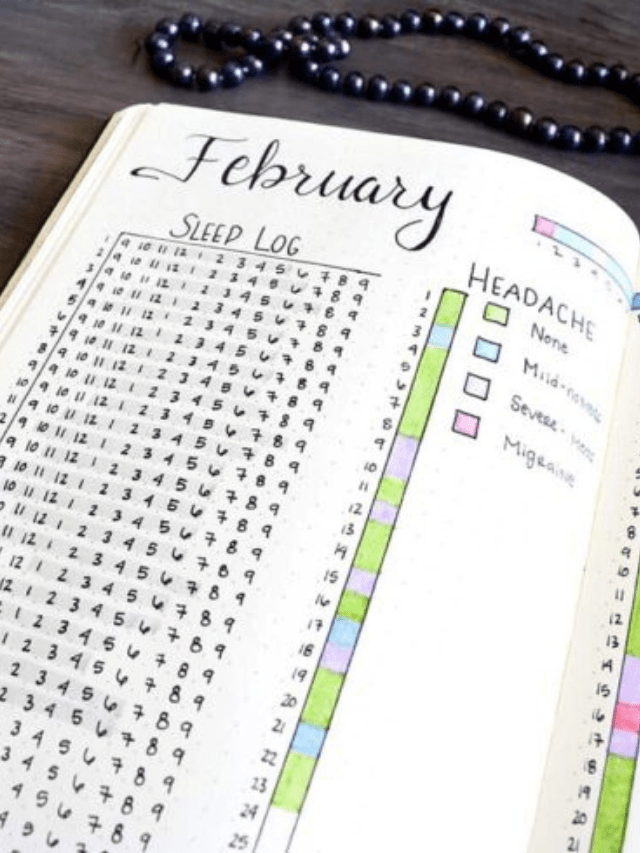 February
SLEEP LOG
1 9 10 11 12 1 2 3 4 5 6 7 8 9
2 9 10 11 12 1 2 3 4 5 6 7 8 9
3 9 10 11 12 1 2 3 4 5 6 7 8 9
4 9 10 11 12 1 2 3 4 5 6 7 8 9
5 9 10 11 12 1 2 3 4 5 6 7 8 9
6 9 10 11 12 1 2 3 4 5 6 7 8 9
7 9 10 11 12 1 2 3 4 5 6 7 8 9
8 9 10 11 12 1 2 3 4 5 6 7 8 9
9 9 10 11 12 1 2 3 4 5 6 7 8 9
10 9 10 11 12 1 2 3 4 5 6 7 8 9
11 9 10 11 12 1 2 3 4 5 6 7 8 9
9 10 11 12 1 2 3 4 5 6 7 8 9
9 10 11 12 1 2 3 4 5 6 7 8 9
10 11 12 1 2 3 4 5 6 7 8 9
11 12 1 2 3 4 5 6 7 8 9
12 1 2 3 4 5 6 7 8 9
12 1 2 3 4 5 6 7 8 9
1 2 3 4 5 6 7 8 9
2 3 4 5 6 7 8 9
2 3 4 5 6 7 8 9
3 4 5 6 7 8 9
3 4 5 6 7 8 9
4 5 6 7 8 9
HEADACHE
None
Severe
Migraine
1
2
3
4
5
6
7
8
9
10
11
12
13
14
15
16
17
18
19
20
21
22
23
24
25
1 2 3 4 5
7
8
9
10
11
12
13
14
15
16
17
18
19
20
21